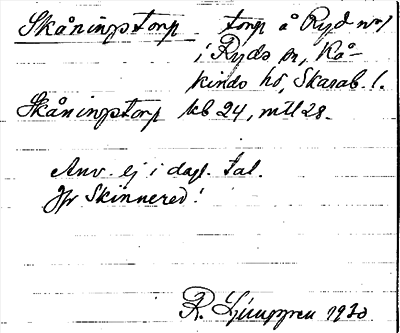 Skåningstorp torp å Ryd nr 1
i Ryds sn, Kå-
kinds hd, Skarab. l.
Skåningstorp kb 24, mtl 28.
Anv. ej i dagl. tal.
Jfr Skinnered!
R. Ljunggren 1930